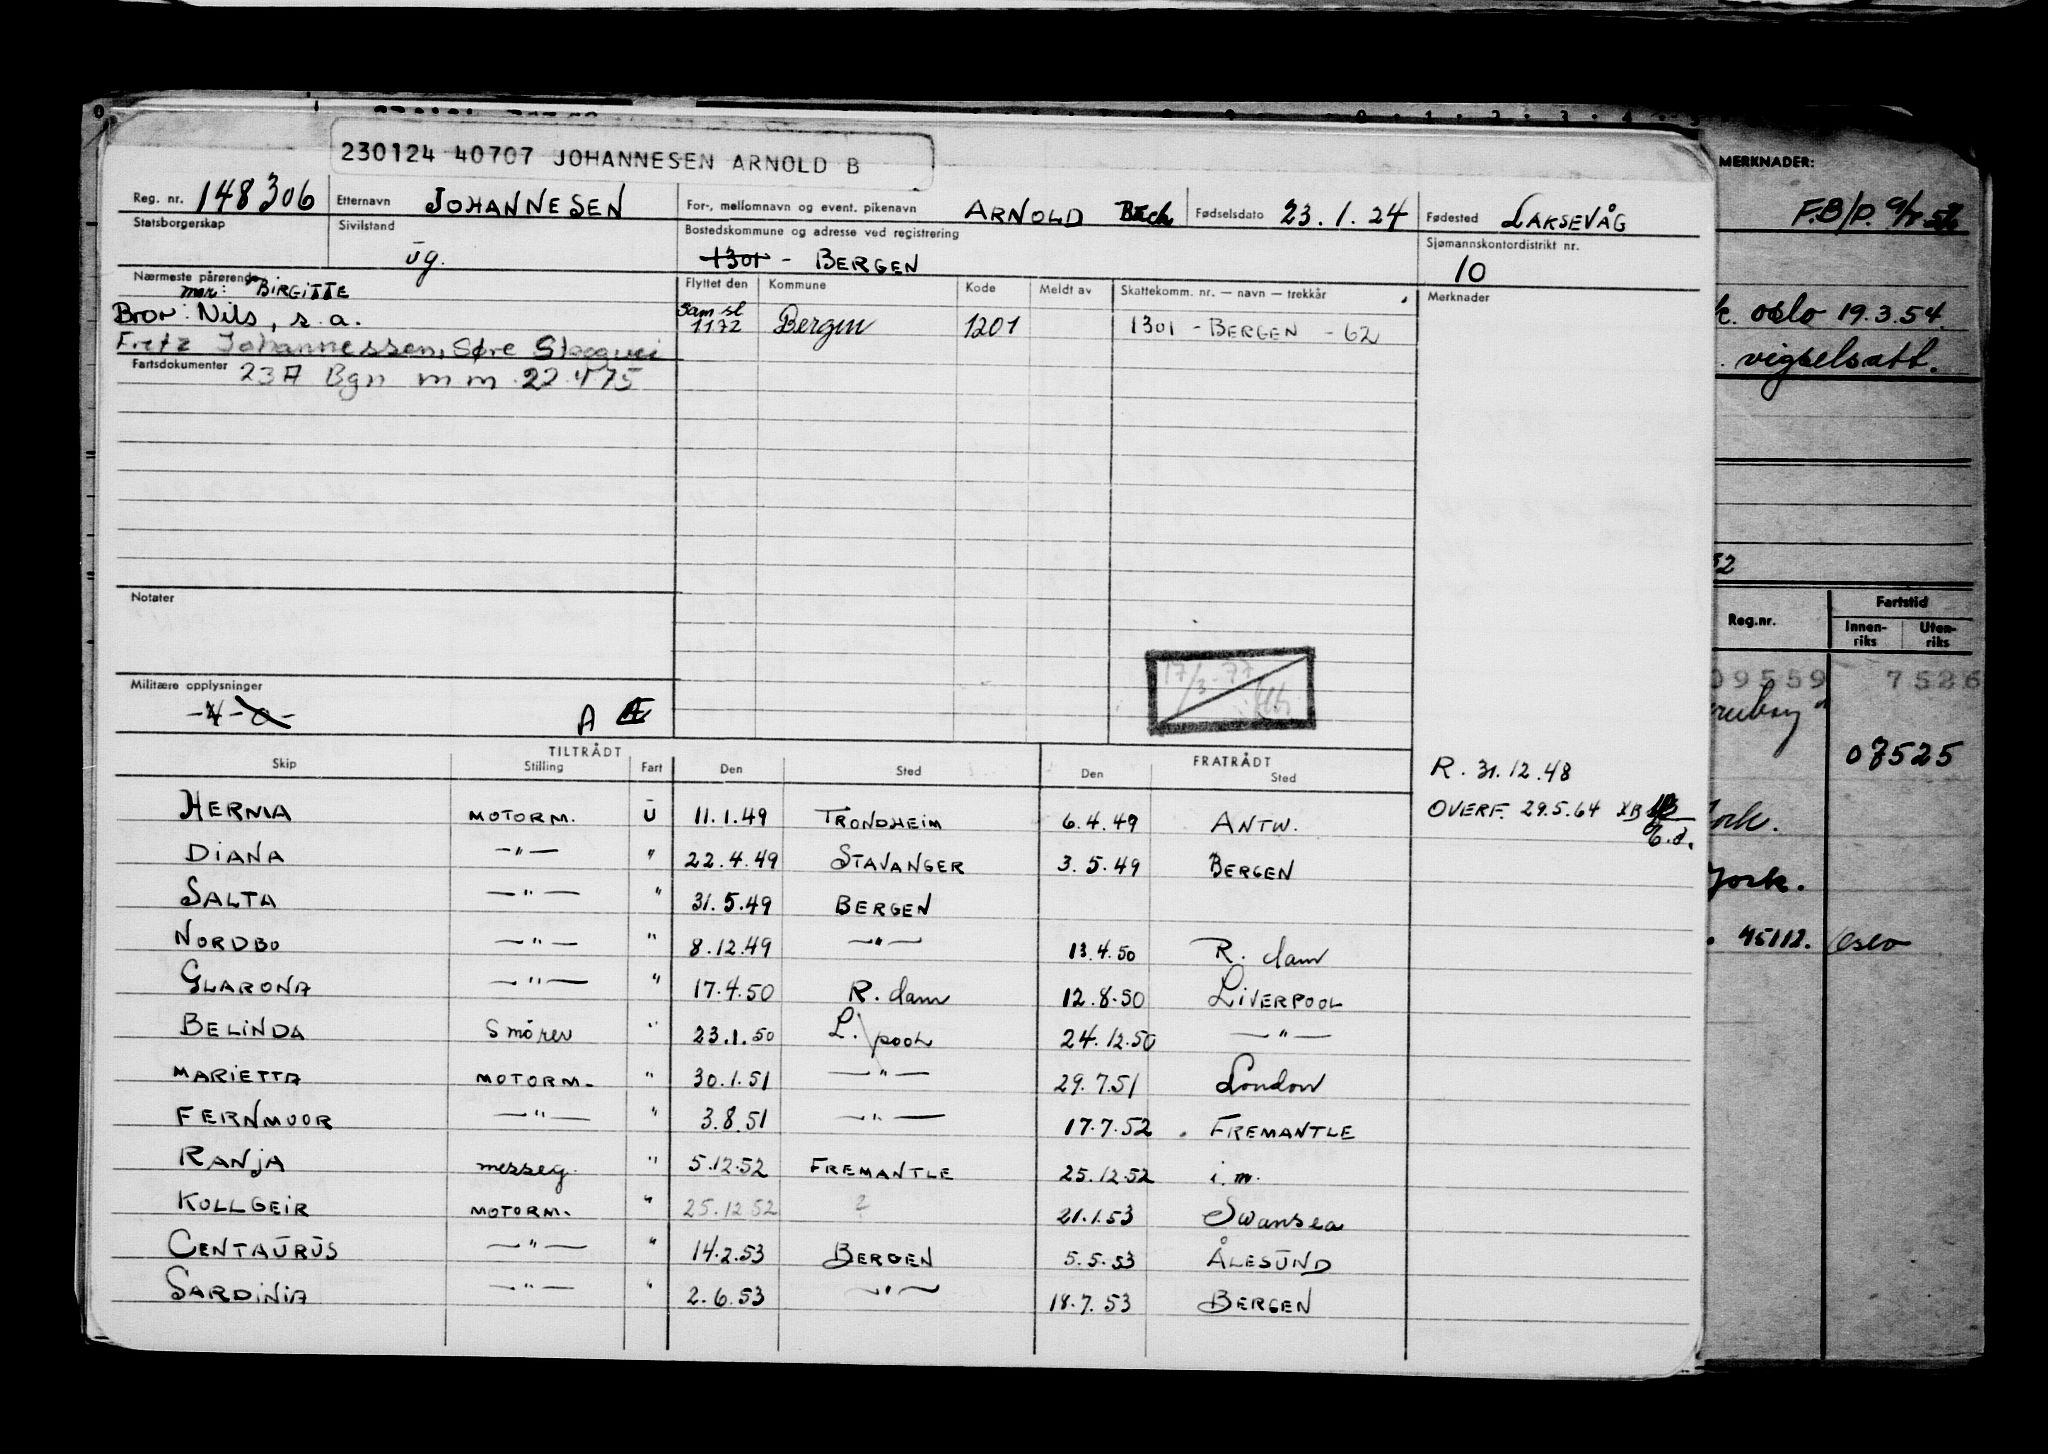 230124 40707 JOHANNESEN ARNOLD B
MERKNADER:
Reg. nr. 148306 Etternavn JOHANNESEN For-, mellomnavn og event. pikenavn ARNOLD Fødselsdato 23.1.24 Fødested LAKSEVÅG
Statsborgerskap Sivilstand ug. Bostedskommune og adresse ved registrering 1301 - BERGEN Sjømannskontordistrikt nr. 10
Nærmeste pårørende mor: BIRGITTE Flyttet den Kommune Kode Meldt av Skattekomm. nr. — navn — trekkår Merknader
Bror: Nils, s.a. 1172 Bergen 1201 1301 - BERGEN - 62
Johannessen, Søre
Fartsdokumenter 23A Bgn m m 22.4 75
oslo 19.3.54.
vigselsatt.
Notater
Militære opplysninger
A
17/3-77
Reg.nr. Fartstid
Innen-riks Uten-riks
09559 7526
07525
York.
York.
45112. Oslo
TILTRÅDT FRATRÅDT
Skip Stilling Fart Den Sted Den Sted
R. 31.12.48
OVERF. 29.5.64
HERNIA MOTORM. U 11.1.49 TRONDHEIM 6.4.49 ANTW.
DIANA —"— " 22.4.49 STAVANGER 3.5.49 BERGEN
SALTA —"— " 31.5.49 BERGEN
NORDBO —"— " 8.12.49 —"— 13.4.50 R.dam
GLARONA —"— " 17.4.50 R.dam 12.8.50 LIVERPOOL
BELINDA Smörer " 23.1.50 L.pool 24.12.50 —"—
MARIETTA MOTORM. " 30.1.51 —"— 29.7.51 London
FERNMOOR —"— " 3.8.51 —"— 17.7.52 FREMANTLE
RANJA messeg. " 5.12.52 FREMANTLE 25.12.52 i.m.
KOLLGEIR MOTORM. " 25.12.52 ? 21.1.53 Swansea
CENTAURUS —"— " 14.2.53 BERGEN 5.5.53 ÅLESUND
SARDINIA —"— " 2.6.53 —"— 18.7.53 BERGEN